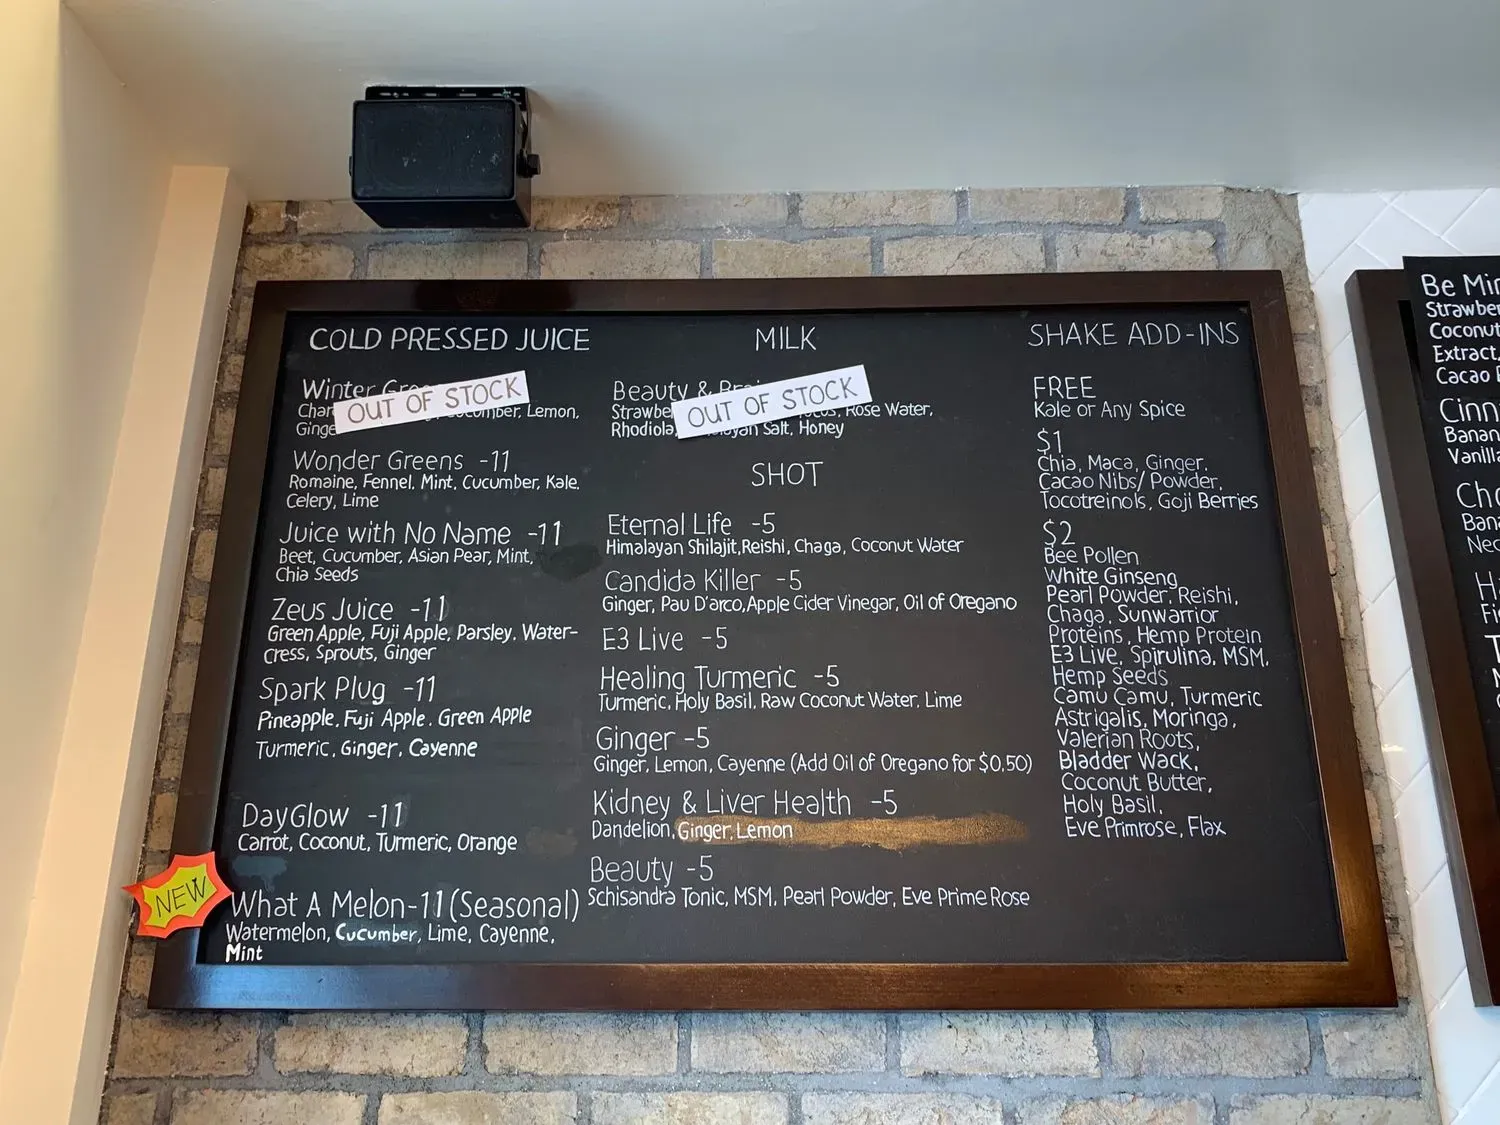 COLD PRESSED JUICE
Winter
OUT OF STOCK
Lemon,
Wonder Greens -11
Romaine, Fennel, Mint, Cucumber, Kale,
Celery, Lime
Juice with No Name -11
Beet, Cucumber, Asian Pear, Mint,
Chia Seeds
Zeus Juice -11
Green Apple, Fuji Apple, Parsley, Water-
Cress, Sprouts, Ginger
Spark Plug -11
Pineapple, Fuji Apple, Green Apple
Turmeric, Ginger, Cayenne
DayGlow -11
Carrot, Coconut, Turmeric, Orange
NEW
What A Melon-11 (Seasonal)
Watermelon, Cucumber, Lime, Cayenne,
Mint
MILK
Beauty &
OUT OF STOCK
Rose Water,
Rhodiola, Salt, Honey
SHOT
Eternal Life -5
Himalayan Shilajit, Reishi, Chaga, Coconut Water
Candida Killer -5
Ginger, Pau D'arco, Apple Cider Vinegar, Oil of Oregano
E3 Live -5
Healing Turmeric -5
Turmeric, Holy Basil, Raw Coconut Water, Lime
Ginger -5
Ginger, Lemon, Cayenne (Add Oil of Oregano for $0.50)
Kidney & Liver Health -5
Dandelion, Ginger, Lemon
Beauty -5
Schisandra Tonic, MSM, Pearl Powder, Eve Prime Rose
SHAKE ADD-INS
FREE
Kale or Any Spice
$1
Chia, Maca, Ginger,
Cacao Nibs/ Powder,
Tocotreinols, Goji Berries
$2
Bee Pollen
White Ginseng
Pearl Powder, Reishi,
Chaga, Sunwarrior
Proteins, Hemp Protein
E3 Live, Spirulina, MSM,
Hemp Seeds
Camu Camu, Turmeric
Astrigalis, Moringa,
Valerian Roots,
Bladder Wack,
Coconut Butter,
Holy Basil,
Eve Primrose, Flax
Be
Coconut
Extract,
Cacao